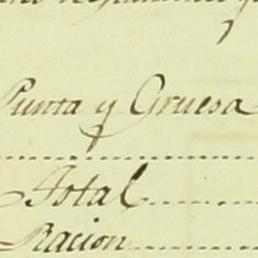 Punta y Gruesa
Total
Racion